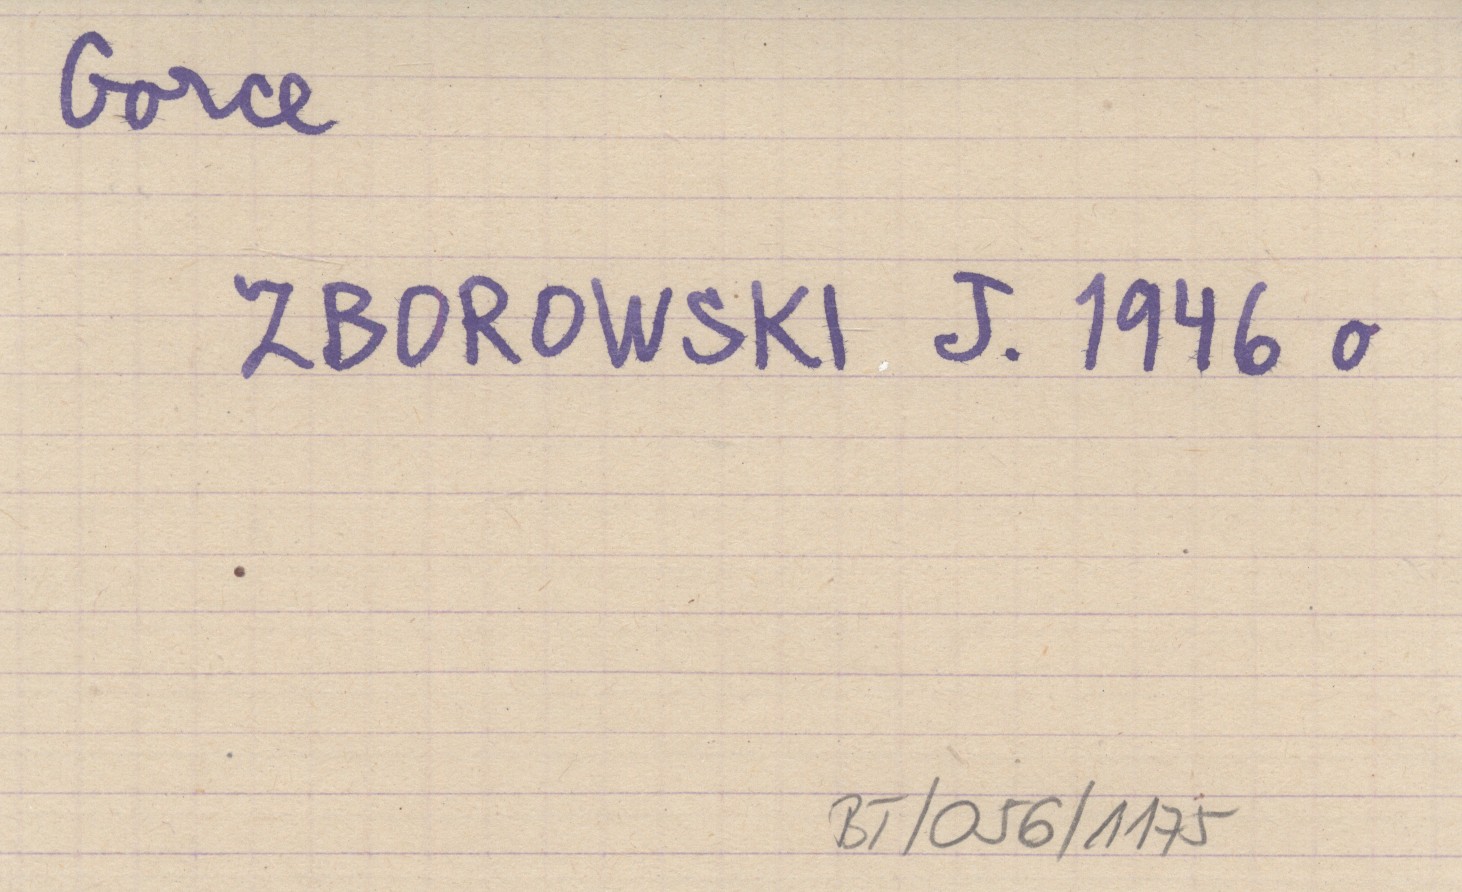 Gorce
ZBOROWSKI J. 1946 o
BT/056/1175